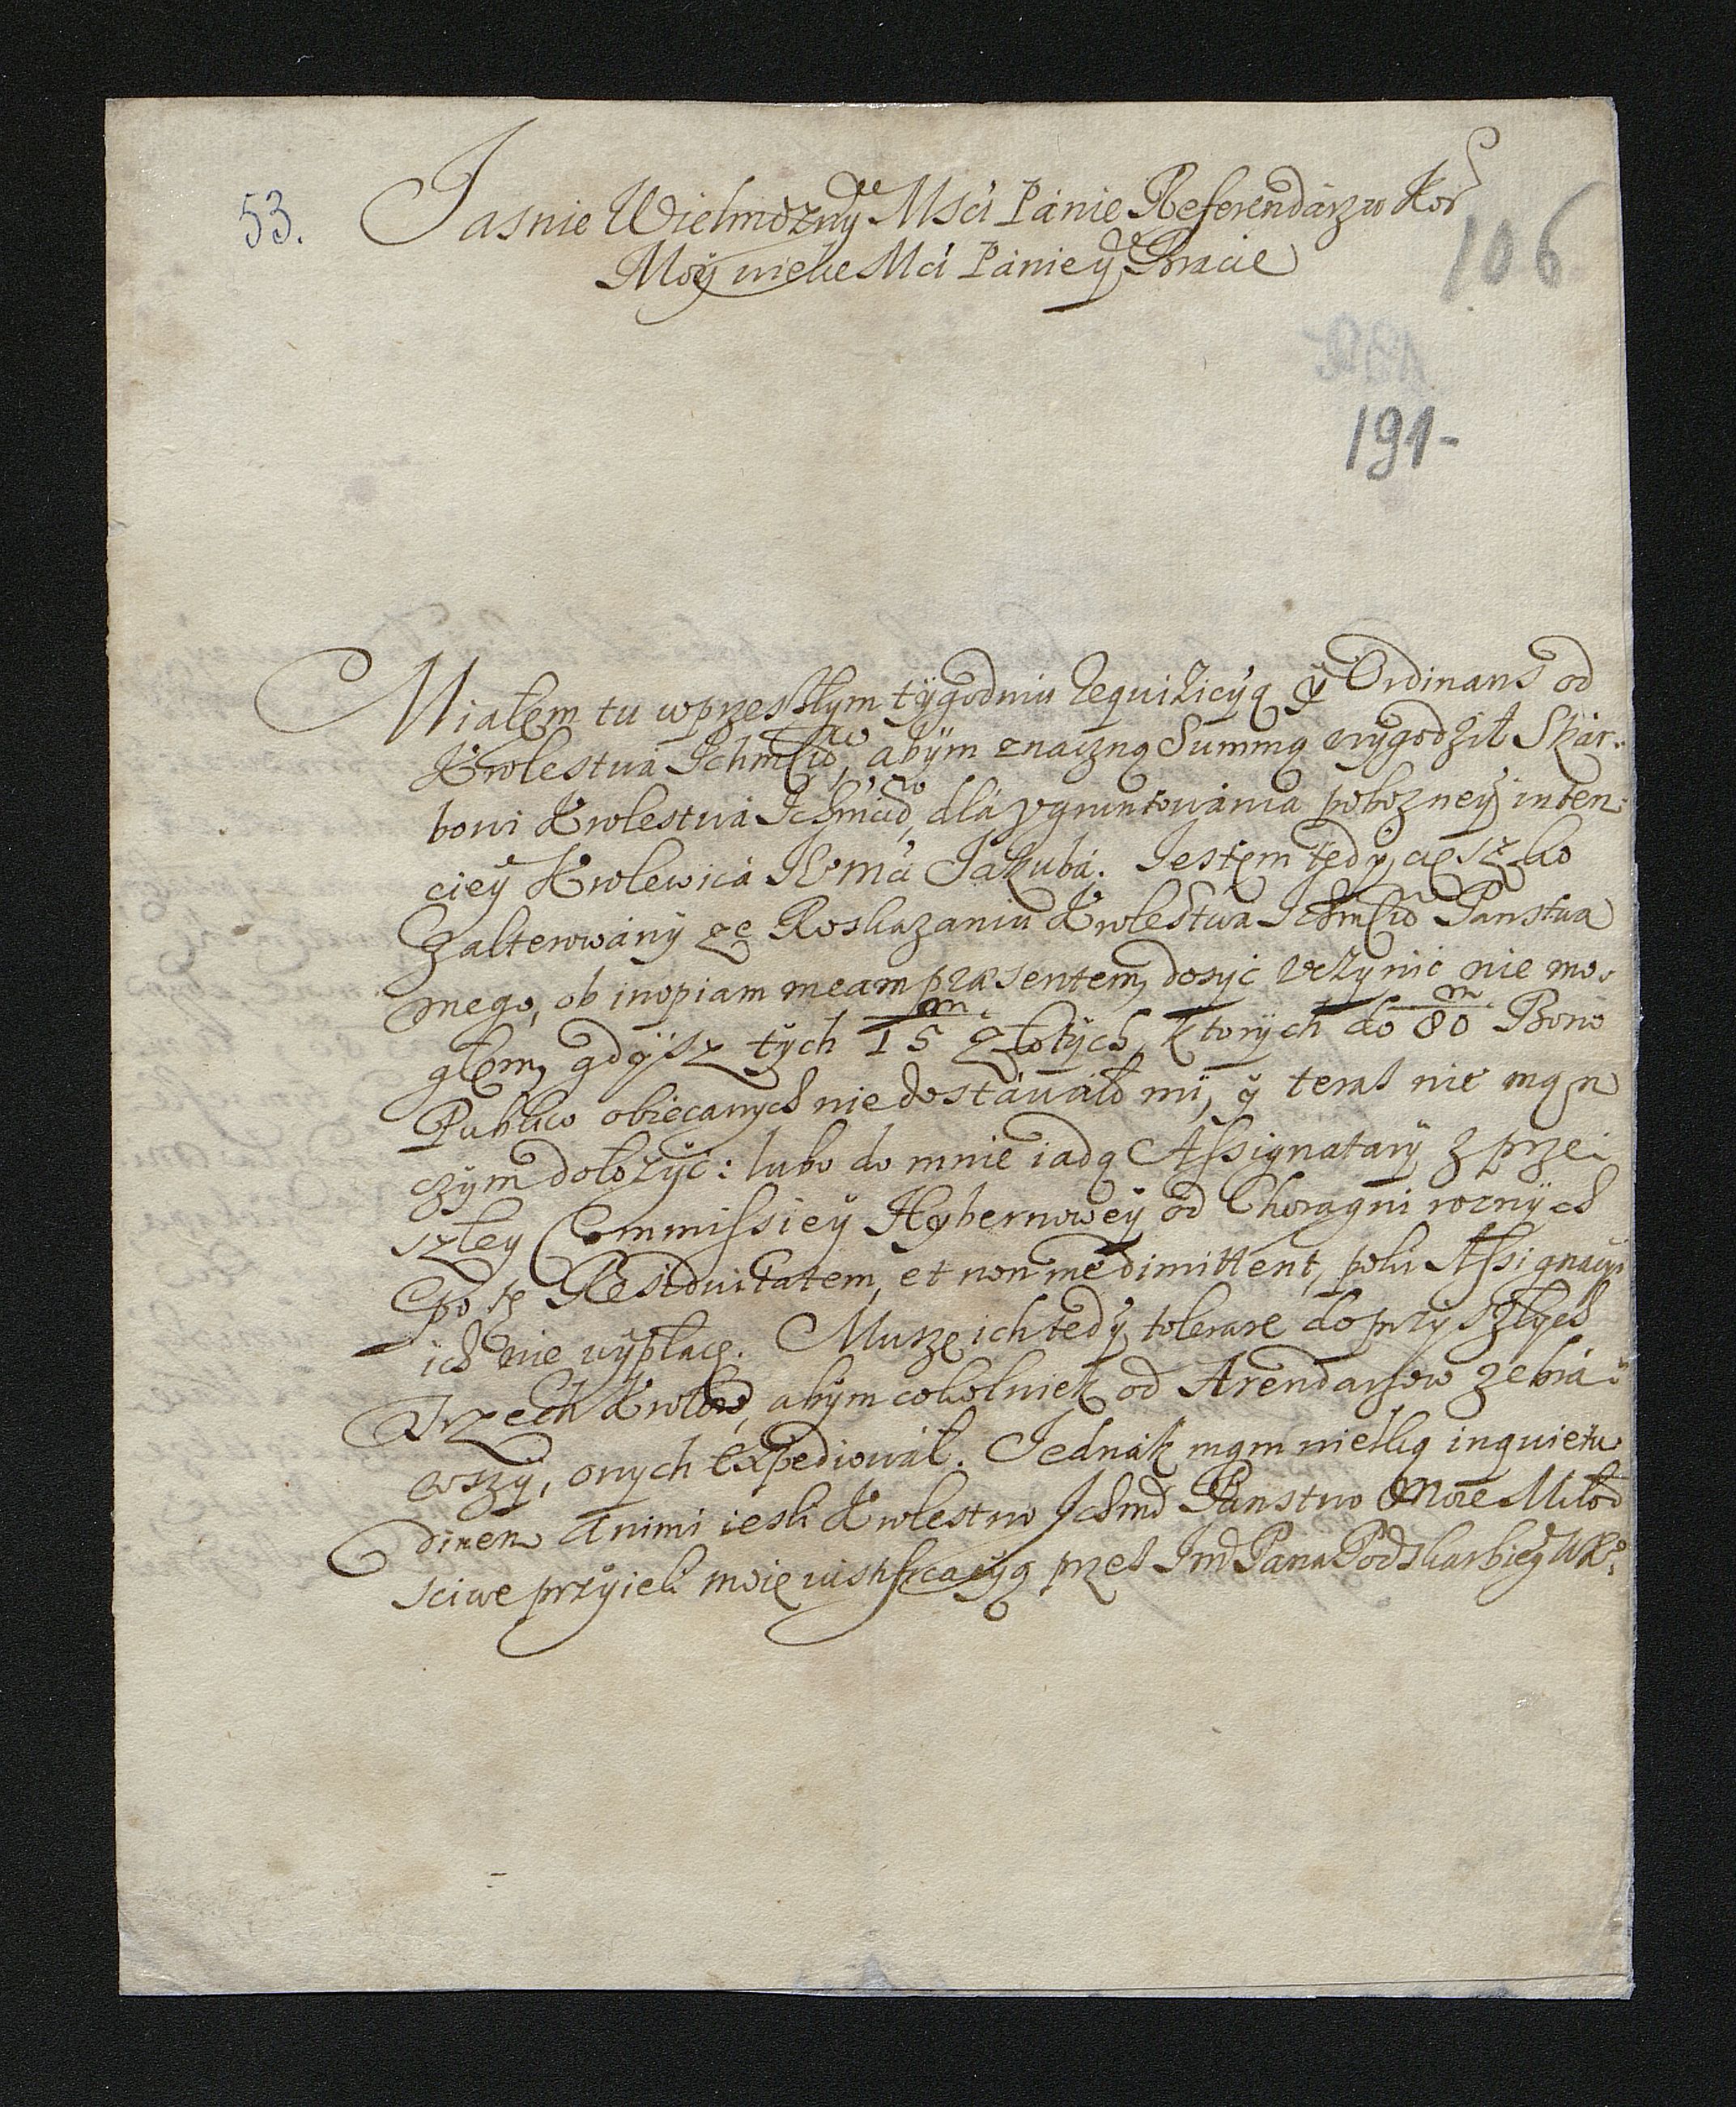 53.
Jasnie Wielmozny Msci Pánie Referendarzu Kor
106
Moÿ wielce Mci Pánie ÿ Bracie
191-
Miałem tu w przeszłym tÿgodniu requiziciÿą ÿ Ordinans od
Krolestwá Ichmciow, abÿm znaczną Summą wÿgodził Skár-
bowi Krolestwá Ichmciow, dlá vgruntowánia pobozneÿ inten-
cieÿ Krolewicá Je° mci Jakubá. Jestem tedÿ cięszko
zalterowánÿ ze Roskazaniu Krolestwá Ichmciow Panstwa
mego, ob inopiam meam præsentem, dosÿc vczÿnic nie mo-
głem, gdÿsz tÿch 15 m złotÿch, ktorÿch do 80 m Bono
Publico obiecanych nie dostáwáło mi, ÿ teras nie mąm
czÿm dołozÿc: lubo do mnie iadą Assignatarÿ z prze-
szłey Commissieÿ Hÿbernoweÿ od Choragni roznÿch
po tę Residuitatem, et non me dimittent, poki Assignacÿi
ich nie wÿpłacę. Muszę ich tedÿ tolerare do przyszłych
Trzech Krolow, abÿm cokolwiek od Arendarzow zebra-
wszÿ, onych expediowáł. Jednák mąm wielką inquietu-
dinem animi iesli Krolestwo Ichmc Panstwo Moie Miło-
sciwe przÿieli moię iustificacÿą przes Jmc Pana Podskarbieg° WK°: